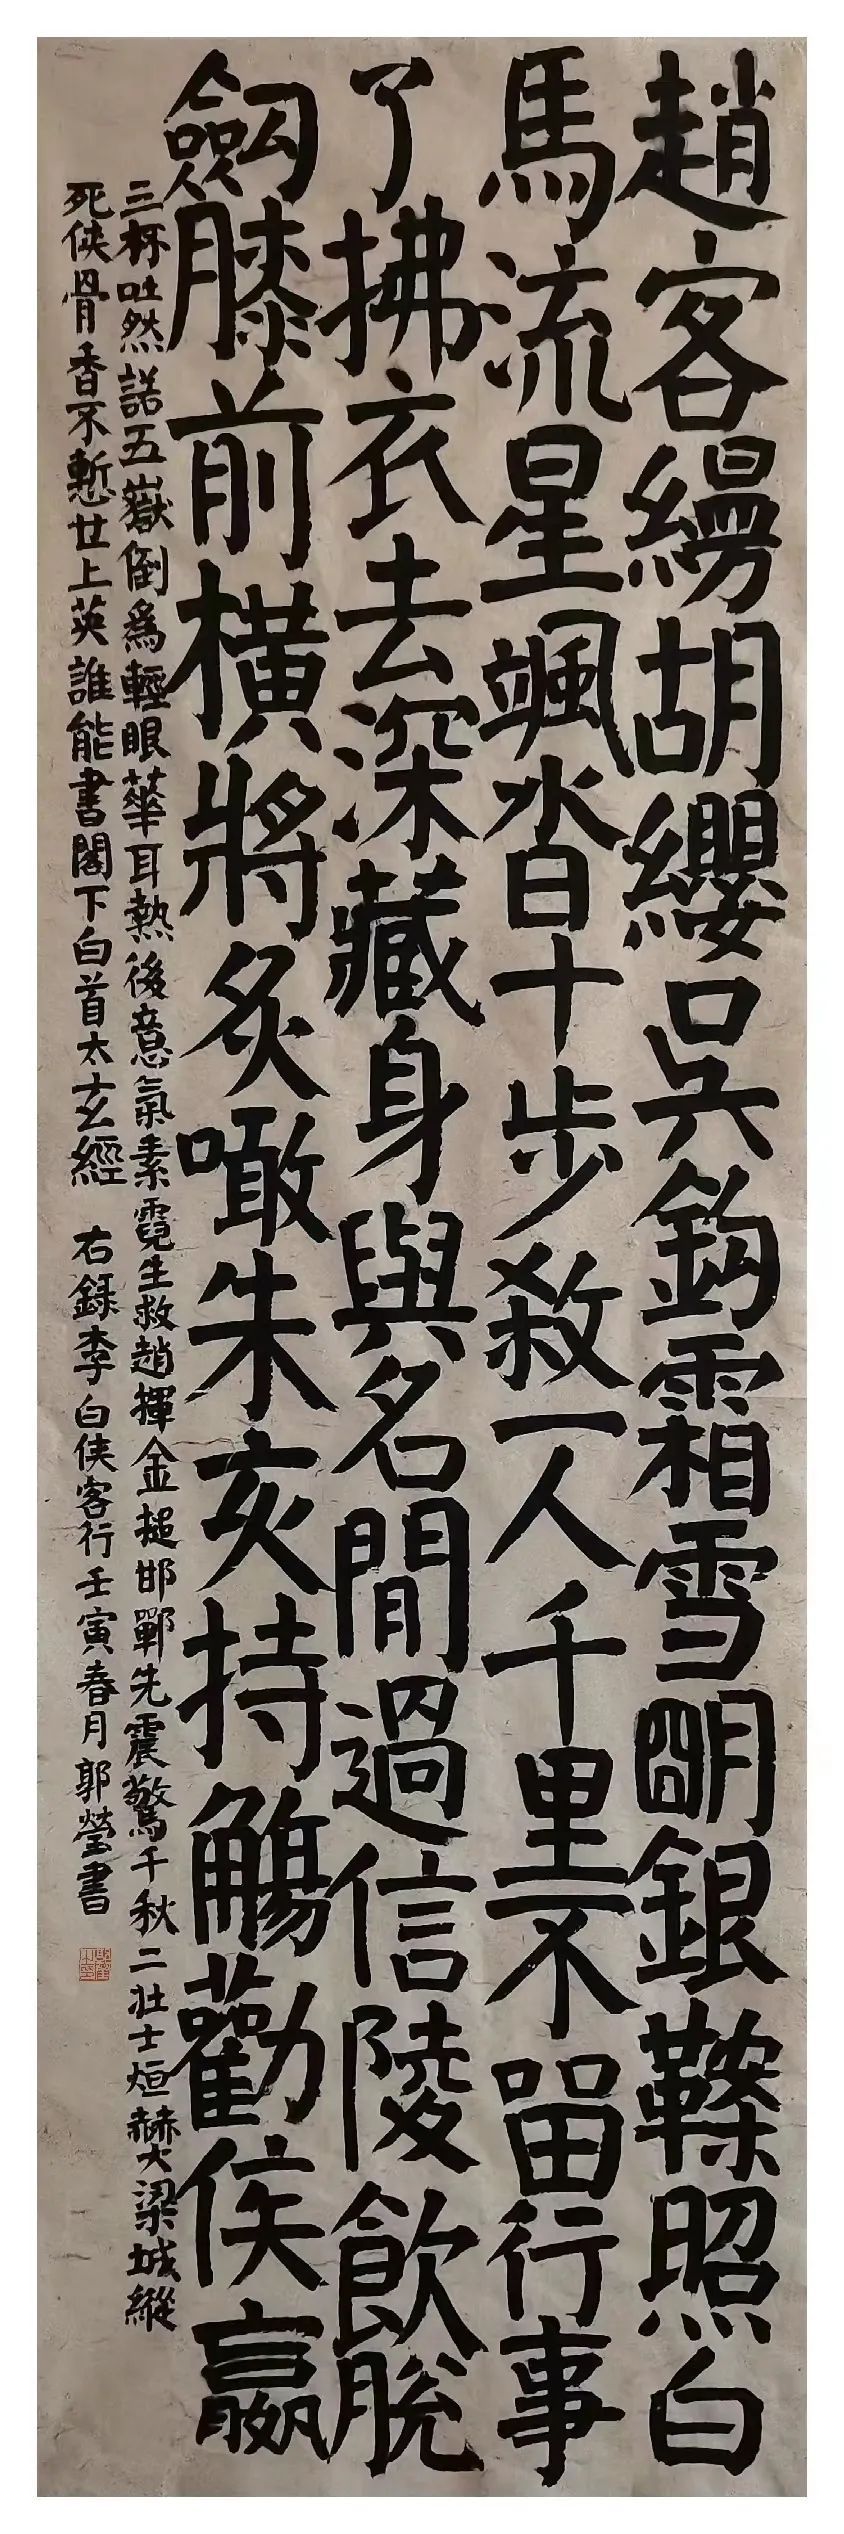 趙客縵胡纓吳鉤霜雪明銀鞍照白
馬流星颯沓十步殺一人千里不留行事
了拂衣去深藏身與名閒過信陵飲脫
劔膝前橫將炙啖朱亥持觴勸侯嬴
三杯吐然諾五嶽倒為輕眼華耳熱後意氣素霓生救趙揮金搥邯鄲先震驚千秋二壯士烜赫大梁城縱
死俠骨香不慙世上英誰能書閣下白首太玄經 右録李白俠客行壬寅春月郭瑩書